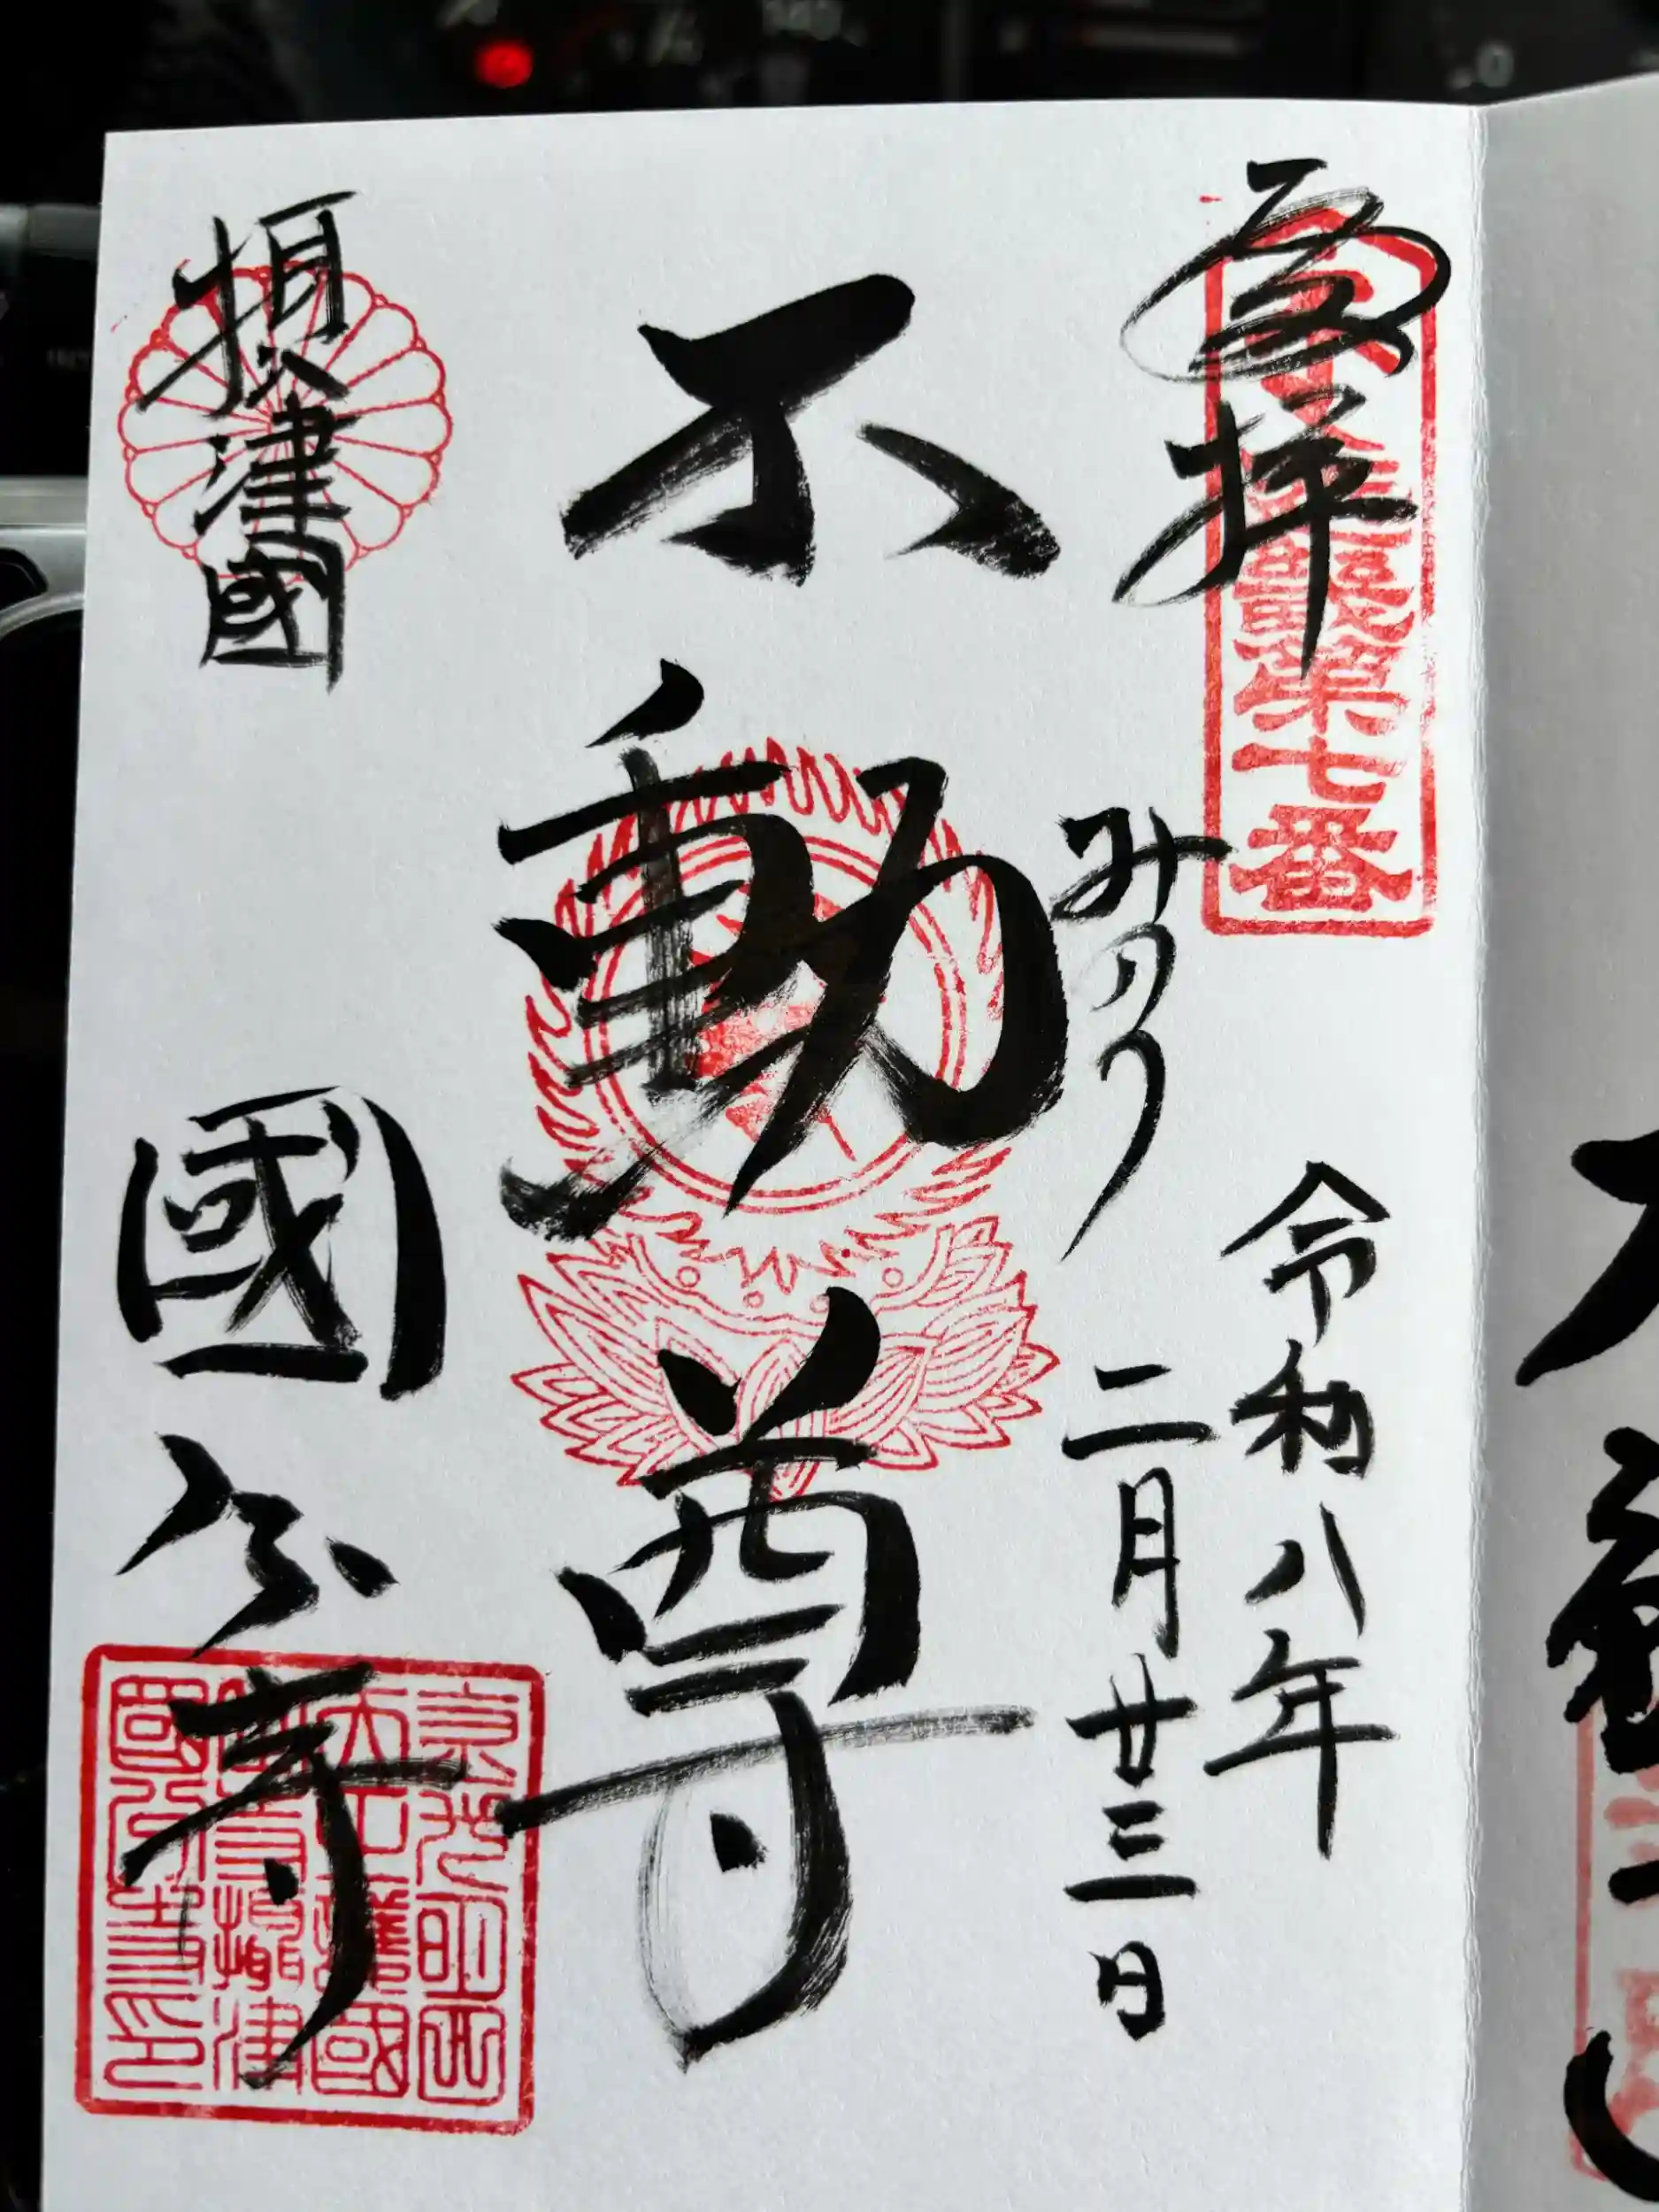 奉拝
第七番
令和八年
二月廿三日
みのり
不動尊
摂津國
國分寺
國分寺印